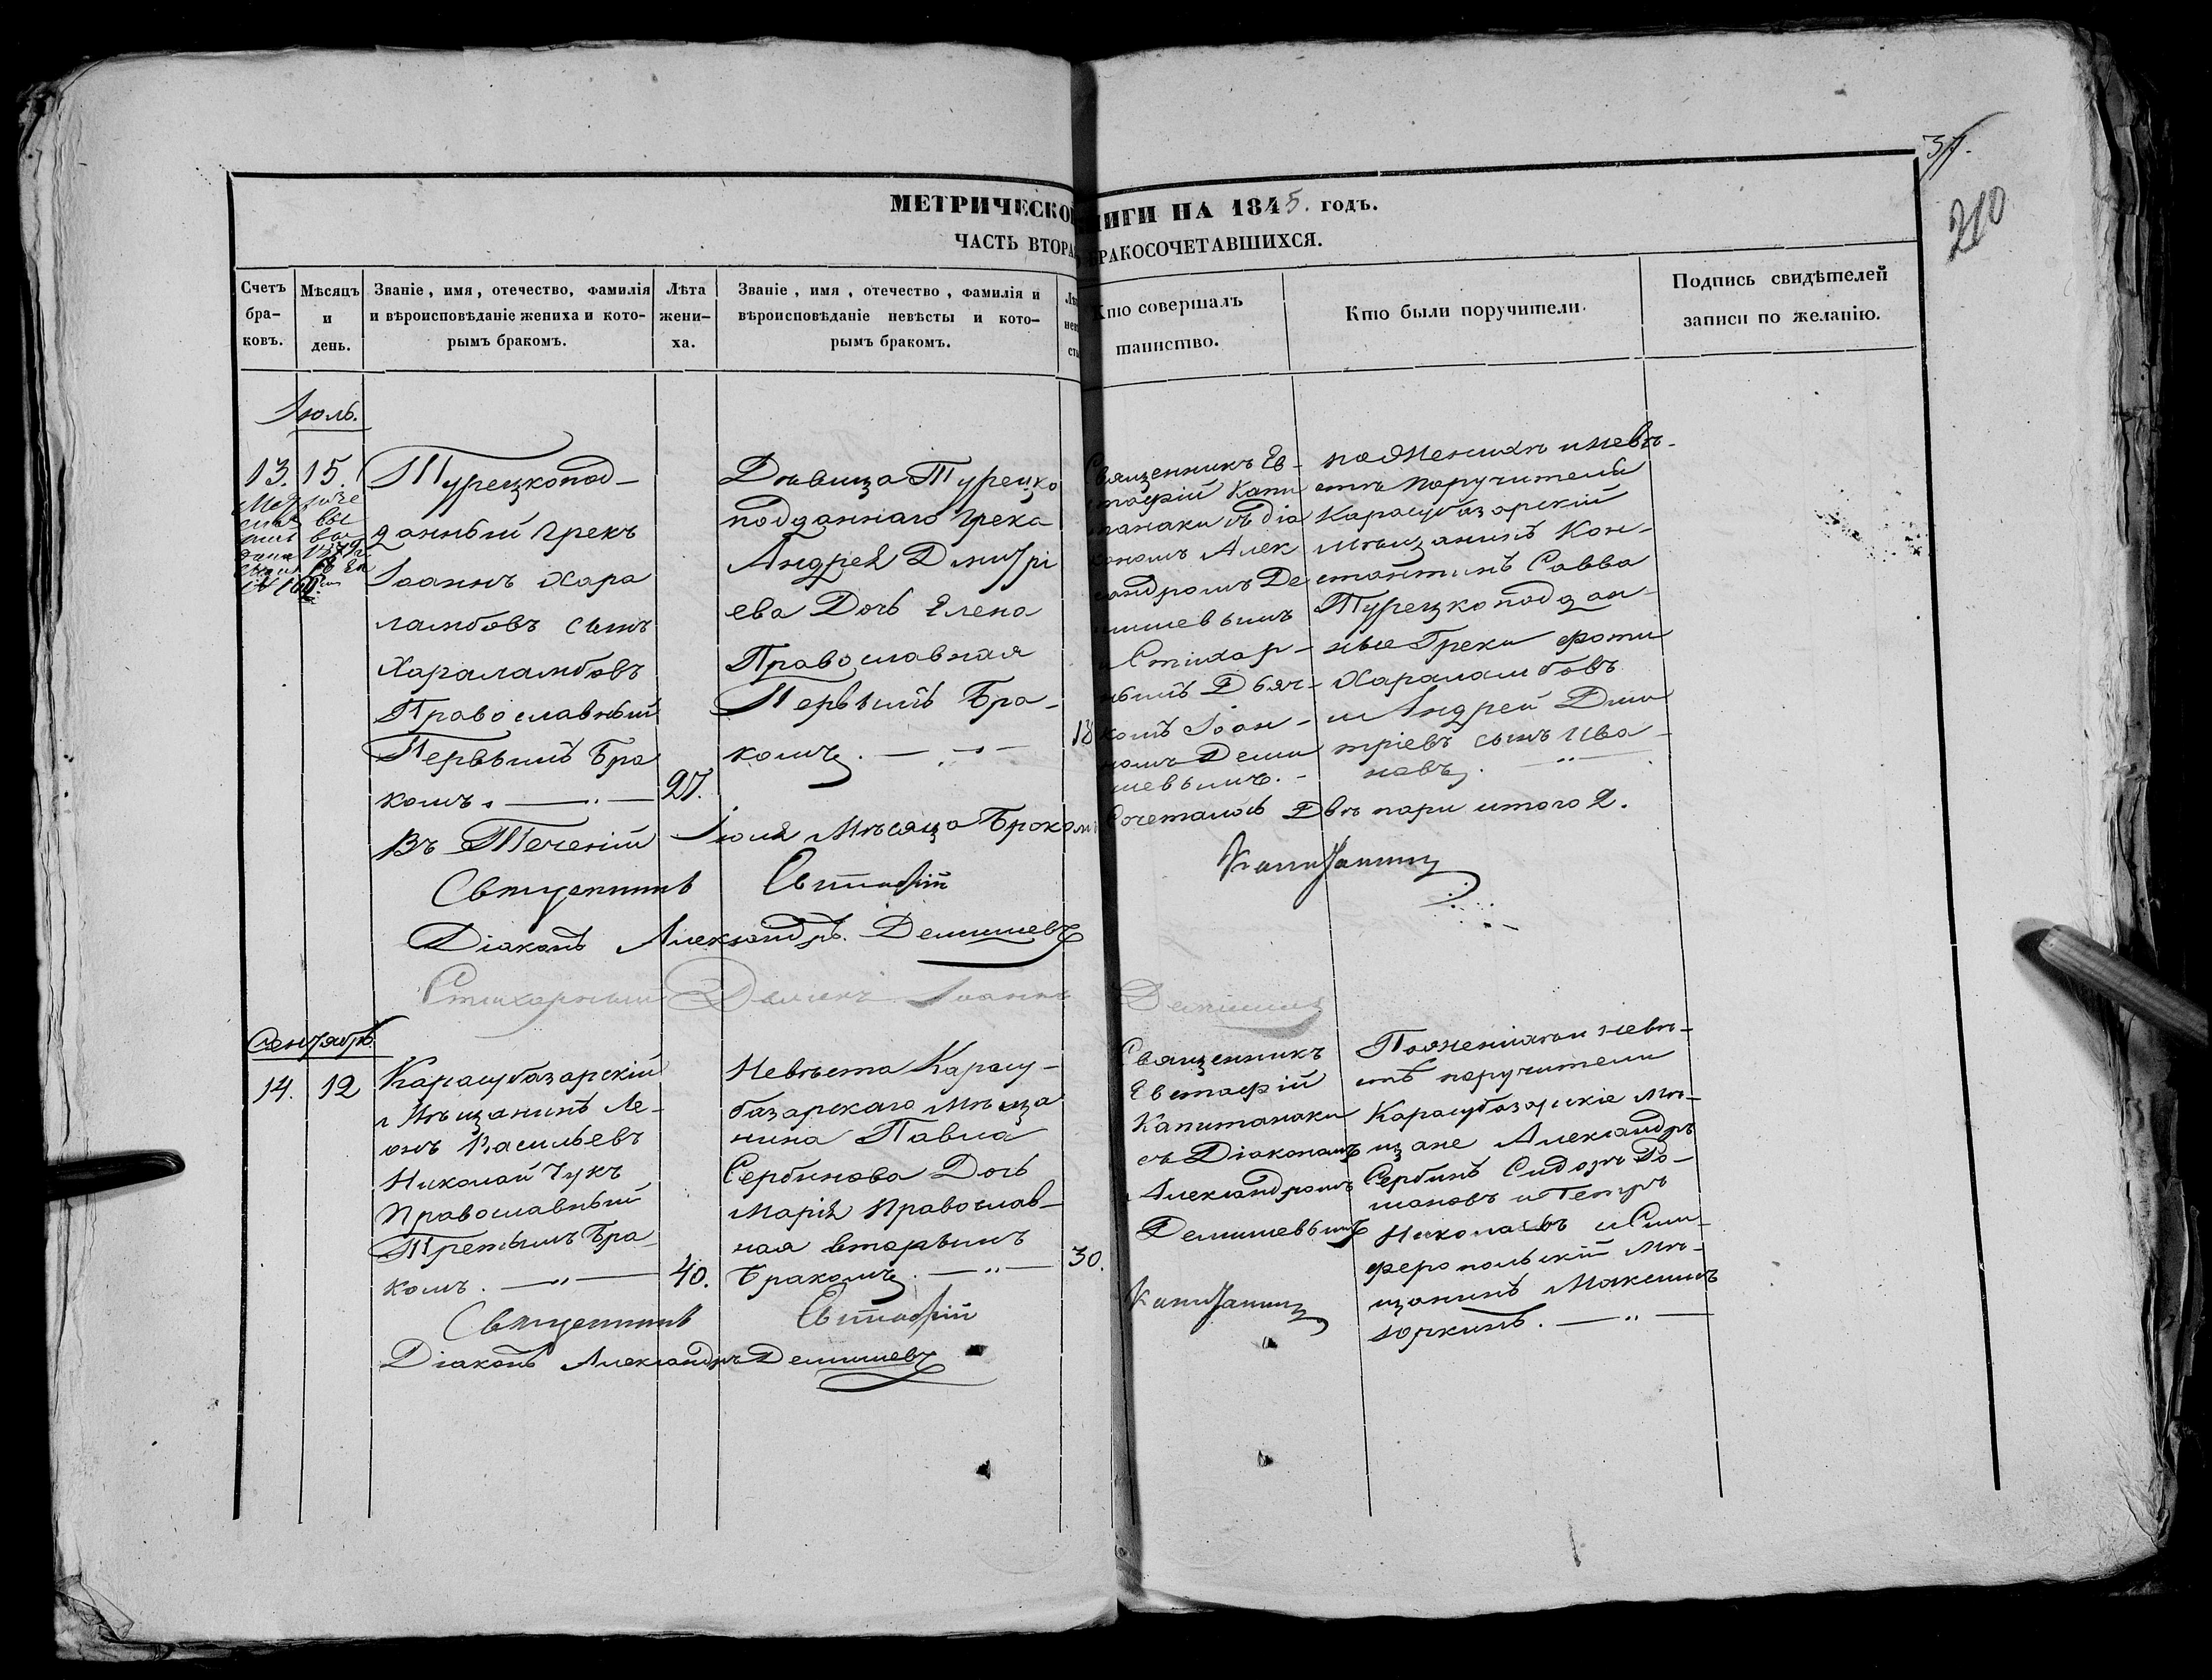 37.
210
МЕТРИЧЕСКО НИГИ НА 1845. годъ.
ЧАСТЬ ВТОРА БРАКОСОЧЕТАВШИХСЯ.
Счетъ бра- ковъ.
Мѣсяцъ и день.
Званіе, имя, отечество, фамилія
и вѣроисповѣданіе жениха и кото-
рымъ бракомъ.
Лѣта жени- ха.
Званіе, имя, отечество, фамилія и
вѣроисповѣданіе невѣсты и кото-
рымъ бракомъ.
Кто совершалъ
таинство.
Кто были поручители.
Подпись свидѣтелей
записи по желанію.
Іюль.
13. 15.
Турецкопод-
данный Грекъ
Іоаннъ Хара
ламбовъ сынъ
Хараламбовъ
Православный
Первымъ Бра
комъ.
27.
Дѣвица Турецко
подданнаго Грека
Андрея Дмитрі
ева Дочь Елена
Православная
Первымъ Бра-
комъ.
18
Священникъ Ев-
стафій Капи
танаки съ діа
кономъ Алек
сандромъ Де
мишевымъ
и Стихар-
нымъ Дьяч-
комъ Іоан-
номъ Деми
шевымъ.
по Женихѣ и невѣ-
стѣ поручители
Карасубазарскій
мѣщанинъ Кон-
стантинъ Савва
Турецкоподдан-
ные Греки Фоти
Хараламбовъ
и Андрей Дми
тріевъ сынъ Ива-
новъ.
Въ Теченіи Іюля Мѣсяца Бракомъ Сочеталось Двѣ пары итого 2.
Священникъ Евстафій
Діаконъ Александръ Демишевъ
Стихарный Дьячекъ Іоаннъ Демишевъ
Сентябрь.
14. 12
Карасубазарскій
Мѣщанинъ Ле-
онъ Васильевъ
Николай Чукъ
Православный
Третьимъ Бра-
комъ.
40.
Невѣста Карасу-
базарскаго мѣща
нина Павла
Сербинова Дочь
Марія Православ-
ная вторымъ
Бракомъ.
30.
Священникъ
Евстафій
Капитанаки
съ Діакономъ
Александромъ
Демишевымъ
По Женихѣ и невѣ-
стѣ поручители
Карасубазарскіе мѣ-
щане Александръ
Сербинъ Сидоръ Ро-
мановъ и Петръ
Николаевъ и Сим-
феропольскій Мѣ-
щанинъ Максимъ
Юркинъ.
Священникъ Евстафій
Діаконъ Александръ Демишевъ